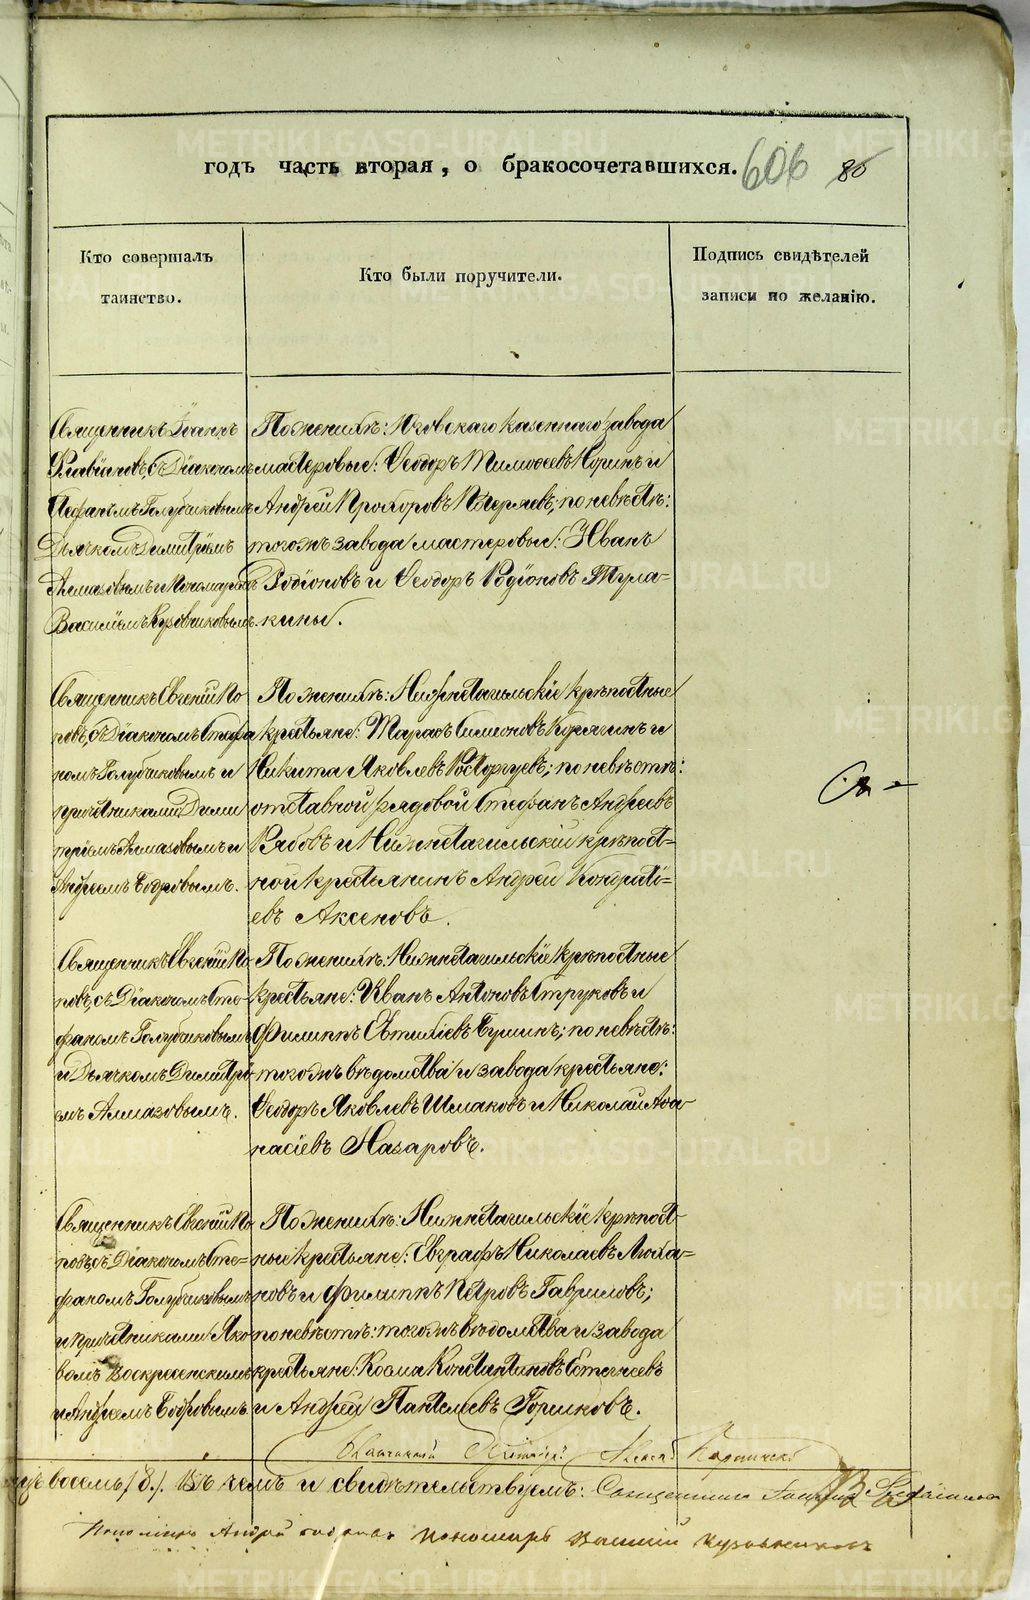 годъ часть вторая, о бракосочетавшихся. 606 86
Кто совершалъ
таинство.
Кто были поручители.
Подпись свидѣтелей
записи по желанію.
Священникъ Іоаннъ
съ Діакономъ
Стефаномъ Голубчиковымъ
Дьячкомъ Димитріемъ
Алмазовымъ и Пономаремъ
Василіемъ Кузовниковымъ.
По женихѣ: Юговскаго казеннаго завода
мастеровые: Ѳеодоръ Тимоѳеевъ и
Андрей Прохоровъ; по невѣстѣ:
тогожъ завода мастеровые: Иванъ
Родіоновъ и Ѳеодоръ Родіоновъ Тула-
кины.
Священникъ Евгеній По
повъ, съ Діакономъ Стефа
номъ Голубчиковымъ и
причетниками Дими
тріемъ Алмазовымъ и
Андреемъ Бобровымъ.
По женихѣ: Нижнетагильскіе крѣпостные
крестьяне: Тарахъ Симеоновъ Корягинъ и
Никита Яковлевъ Расторгуевъ; по невѣстѣ:
отставной рядовой Стефанъ Андреевъ
Рябовъ и Нижнетагильскій крѣпост-
ной крестьянинъ Андрей Кондраті-
евъ Аксеновъ.
Священникъ Евгеній По
повъ, съ Діакономъ Сте-
фаномъ Голубчиковымъ
и Дьячкомъ Димитрі-
емъ Алмазовымъ.
По женихѣ: Нижнетагильскіе крѣпостные
крестьяне: Иванъ Антоновъ Струковъ и
Филиппъ Евтихіевъ Бушинъ; по невѣстѣ:
тогожъ вѣдомства и завода крестьяне:
Ѳеодоръ Яковлевъ Шмаковъ и Николай Аѳа-
насіевъ Назаровъ.
Священникъ Евгеній По
повъ, съ Діакономъ Сте-
фаномъ Голубчиковымъ
и причетниками Яко
вомъ Воскресенскимъ
и Андреемъ Бобровымъ.
По женихѣ: Нижнетагильскіе крѣпост-
ные крестьяне: Евграфъ Николаевъ Ляха-
новъ и Филиппъ Петровъ Гавриловъ;
по невѣстѣ: тогожъ вѣдомства и завода
крестьяне: Косма Константиновъ Евстигнеевъ
и Андрей Пантелеевъ Горшковъ.
восемь /8/. Въ чемъ и свидѣтельствуемъ: Священникъ
Пономарь Андрей Бобровъ Пономарь Василій Кузовниковъ
METRIKI.GASO-URAL.RU